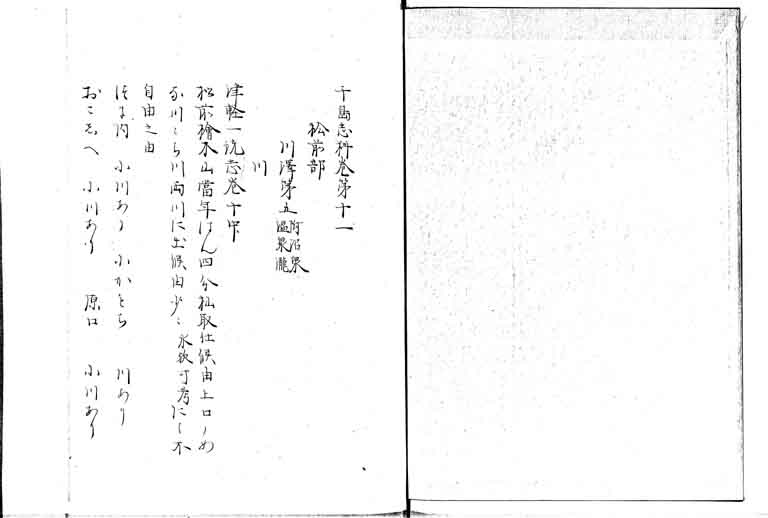 千島志料巻第十一
松前部
川澤第五 附沼泉温泉瀧
川
津軽一統志巻十中
松前檜木山當年はん四分杣取仕候由上口ノめ
な川くち川両川に出候由少〻水致可考にし不
自由之由
内 小川あり 小かとち 川あり
おこしへ 小川あり 原口 小川あり